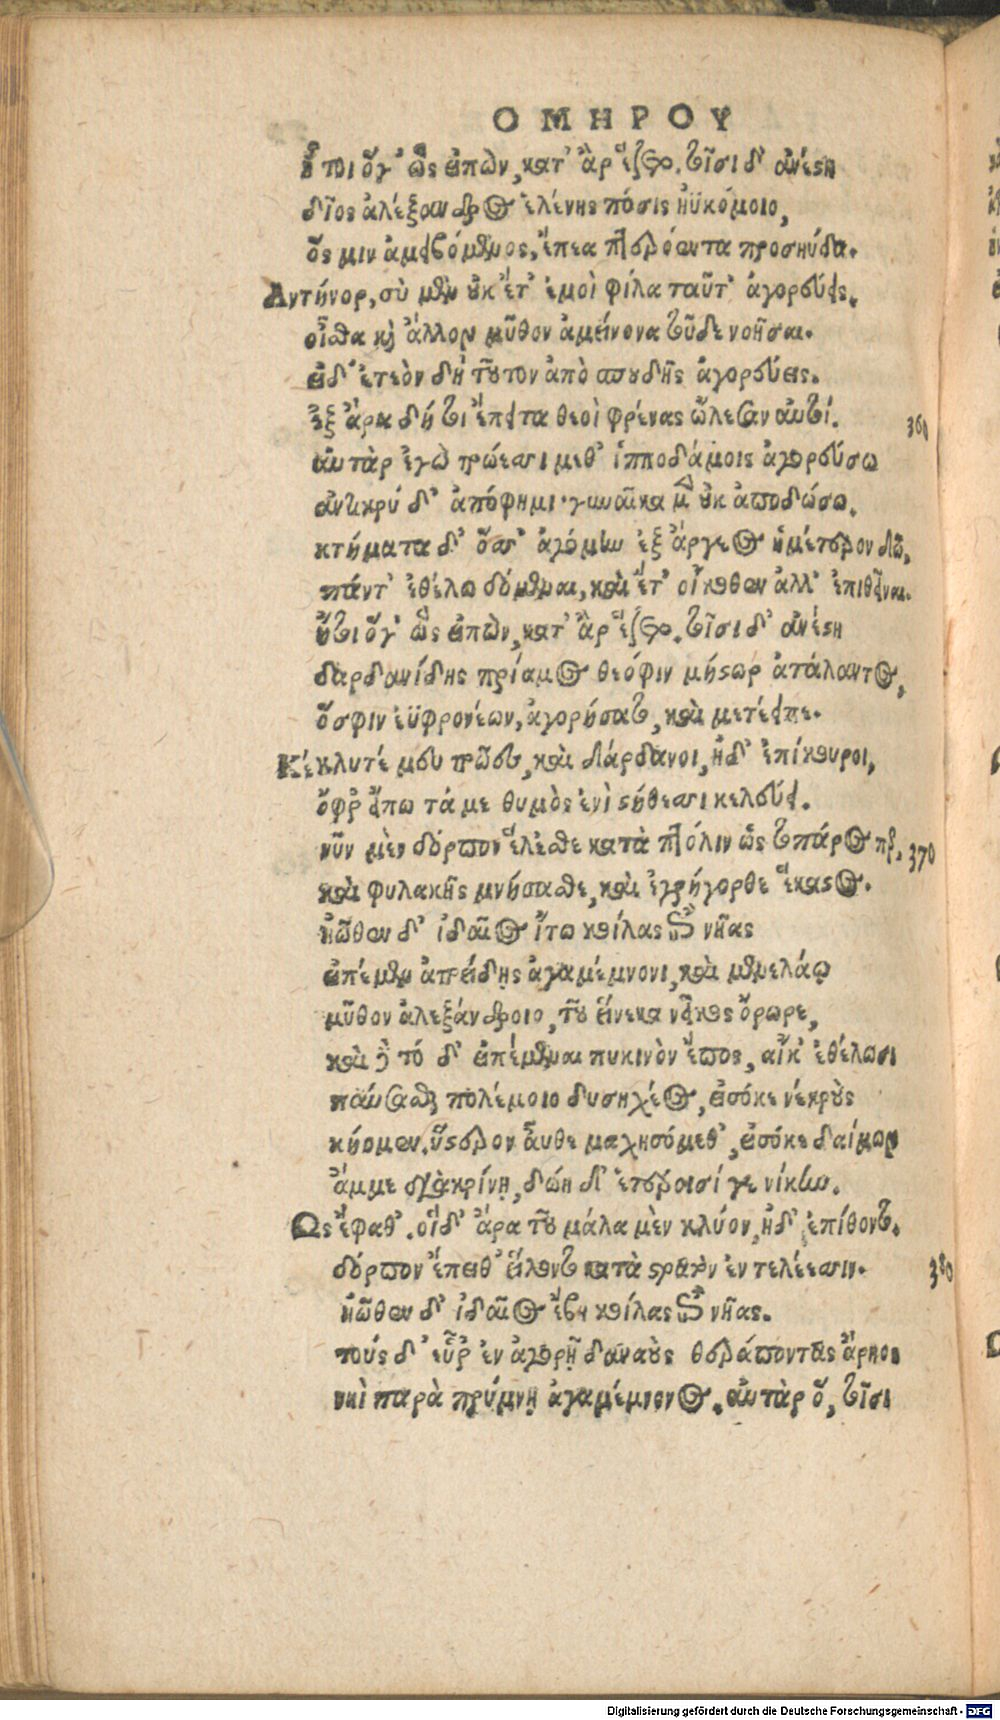 ΟΜΗΡΟΥ
ἤτοι ὅγ' ὣς εἰπὼν, κατ' ἂρ ἕζετο. τοῖσι δ' ἀνέστη
δῖος ἀλέξανδρος ἑλένης πόσις ἠϋκόμοιο,
ὅς μιν ἀμειβόμενος, ἔπεα πτερόεντα προσηύδα.
Αντήνορ, σὺ μὲν οὐκ ἔτ' ἐμοὶ φίλα ταῦτ' ἀγορεύεις.
οἶσθα καὶ ἄλλον μῦθον ἀμείνονα τοῦδε νοῆσαι.
εἰ δ' ἐτεὸν δὴ τοῦτον ἀπὸ σπουδῆς ἀγορεύεις.
ἐξ ἄρα δή τοι ἔπειτα θεοὶ φρένας ὤλεσαν αὐτοί.
360
αὐτὰρ ἐγὼ τρώεσσι μεθ' ἱπποδάμοις ἀγορεύσω
ἀντικρύ δ' ἀπόφημι· γυναῖκα μὲν οὐκ ἀποδώσω.
κτήματα δ' ὅσσ' ἀγόμην ἐξ ἄργεος ἡμέτερον δῶ,
πάντ' ἐθέλω δόμεναι, καὶ ἔτ' οἴκοθεν ἄλλ' ἐπιθεῖναι.
ἤτοι ὅγ' ὣς εἰπὼν, κατ' ἂρ ἕζετο. τοῖσι δ' ἀνέστη
δαρδανίδης πρίαμος θεόφιν μήστωρ ἀτάλαντος,
ὅσφιν ἐϋφρονέων, ἀγορήσατο, καὶ μετέειπε.
Κέκλυτέ μευ τρῶες, καὶ δάρδανοι, ἠδ' ἐπίκουροι,
ὄφρ' εἴπω τά με θυμὸς ἐνὶ στήθεσσι κελεύει.
νῦν μὲν δόρπον ἕλεσθε κατὰ πτόλιν ὡς τοπάρος περ,
370
καὶ φυλακῆς μνήσασθε, καὶ ἐγρήγορθε ἕκαστος.
ἠῶθεν δ' ἰδαῖος ἴτω κοίλας ἐπὶ νῆας
εἰπέμεν ἀτρείδῃς ἀγαμέμνονι, καὶ μενελάῳ
μῦθον ἀλεξάνδροιο, τοῦ εἵνεκα νεῖκος ὄρωρε,
καὶ δὲ τό δ' εἰπέμεναι πυκινὸν ἔπος, αἴκ' ἐθέλωσι
παύσασθαι πολέμοιο δυσηχέος, εἰσόκε νεκροὺς
κήομεν. ὕστερον αὖθε μαχησόμεθ', εἰσόκε δαίμων
ἄμμε διακρίνῃ, δώῃ δ' ἑτέροισί γε νίκην.
Ως ἔφαθ'. οἵδ' ἄρα τοῦ μάλα μὲν κλύον, ἠδ' ἐπίθοντο.
δόρπον ἔπειθ' εἵλοντο κατὰ στρατὸν ἐν τελέεσσιν.
380
ἠῶθεν δ' ἰδαῖος ἔβη κοίλας ἐπὶ νῆας.
τοὺς δ' εὗρ' ἐν ἀγορῇ δαναοὺς θεράποντας ἄρηος
νηὶ παρὰ πρύμνῃ ἀγαμέμνονος. αὐτὰρ ὅ, τοῖσι
Digitalisierung gefördert durch die Deutsche Forschungsgemeinschaft - DFG